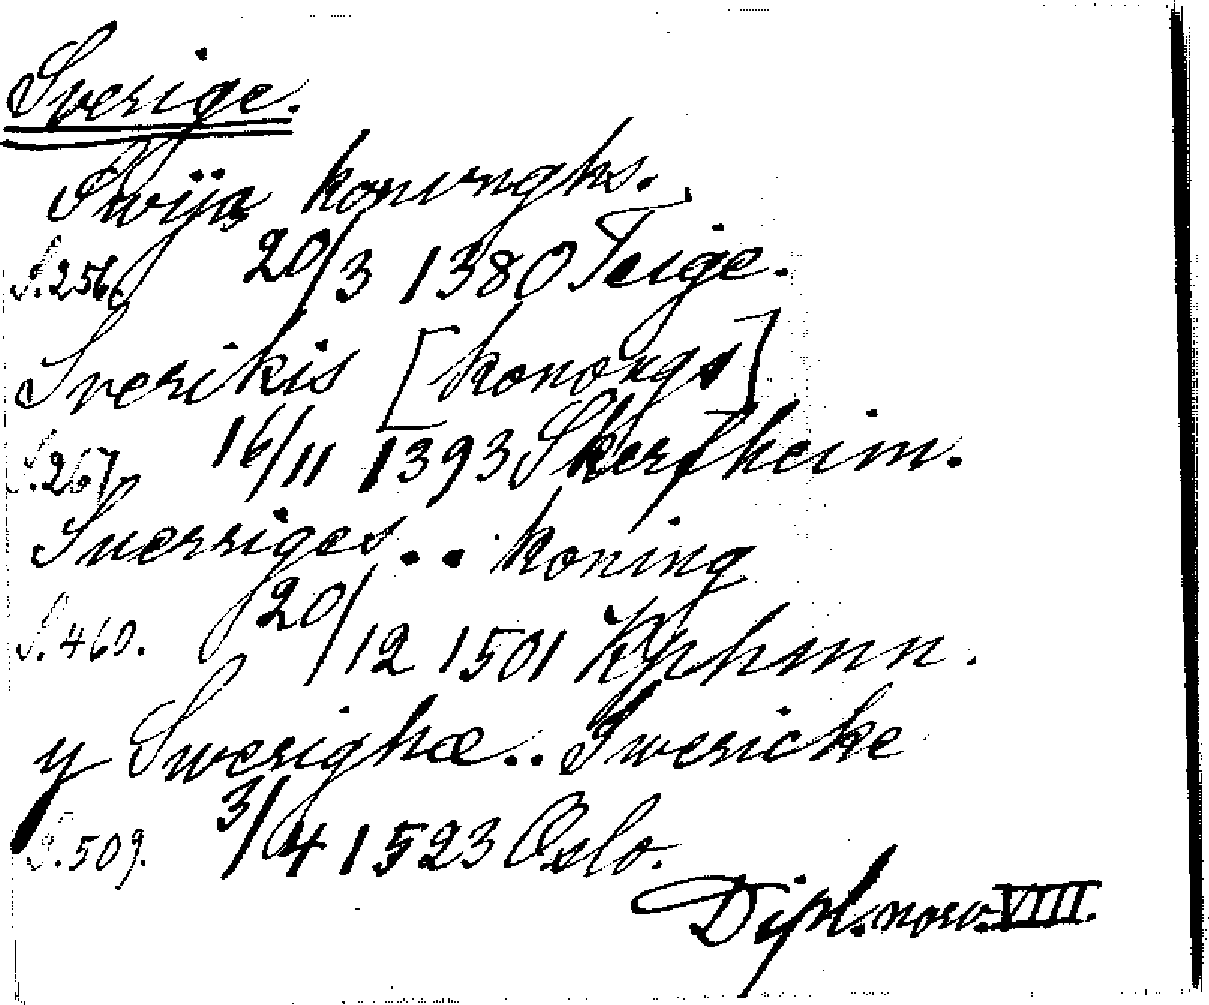 Sverige.
Swija konunghs.
S.256. 20/3 1380 Teige.
Sverikis [konongs]
S.267. 16/11 1393 Skerfheim.
Suerriges.. koning
S.460. 20/12 1501 Kjphmn.
y Swerighæ.. Swericke
S.509. 3/4 1523 Oslo.
Dipl. norv. VIII.